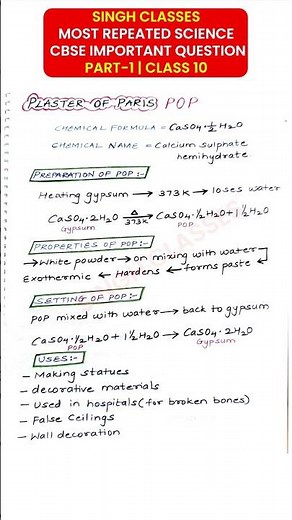 SINGH CLASSES
MOST REPEATED SCIENCE
CBSE IMPORTANT QUESTION
PART-1 | CLASS 10
PLASTER OF PARIS POP
CHEMICAL FORMULA = CaSO4·½H2O
CHEMICAL NAME = Calcium sulphate
hemihydrate
PREPARATION OF POP :-
Heating gypsum → 373K → loses water
CaSO4·2H2O —Δ/373K→ CaSO4·½H2O + 1½H2O
Gypsum POP
PROPERTIES OF POP :-
→ White powder → on mixing with water
Exothermic ← Hardens ← forms paste ←
SETTING OF POP :-
POP mixed with water → back to gypsum
CaSO4·½H2O + 1½H2O → CaSO4·2H2O
POP Gypsum
USES:-
- Making statues
- decorative materials
- Used in hospitals (for broken bones)
- False Ceilings
- Wall decoration